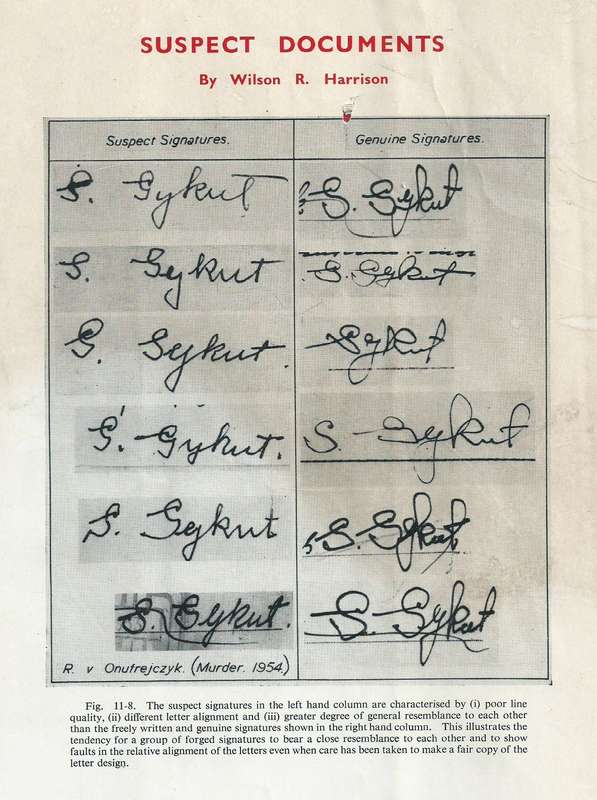 SUSPECT DOCUMENTS
By Wilson R. Harrison
Suspect Signatures.
Genuine Signatures.
S. Sykut
S. Sykut
S. Sykut
S. Sykut
S. Sykut
Sykut
S. Sykut
S. Sykut
S. Sykut
S. Sykut
S. Sykut.
S. Sykut
R. v Onufrejczyk. (Murder. 1954.)
Fig. 11-8. The suspect signatures in the left hand column are characterised by (i) poor line
quality, (ii) different letter alignment and (iii) greater degree of general resemblance to each other
than the freely written and genuine signatures shown in the right hand column. This illustrates the
tendency for a group of forged signatures to bear a close resemblance to each other and to show
faults in the relative alignment of the letters even when care has been taken to make a fair copy of the
letter design.